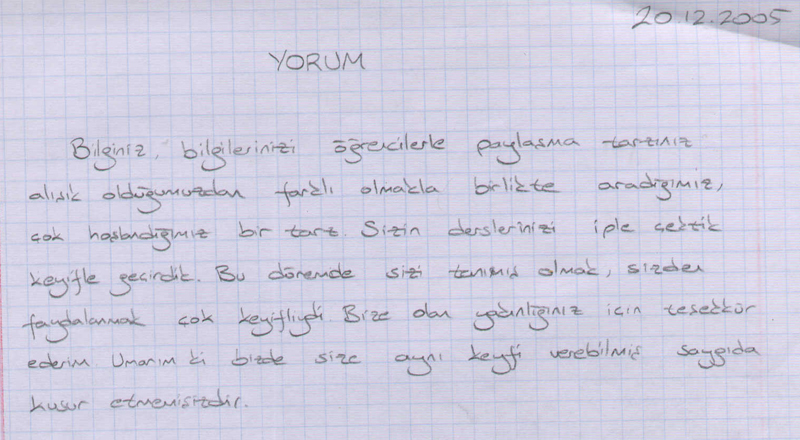 20.12.2005
YORUM
Bilginiz, bilgilerinizi öğrencilerle paylaşma tarzınız
alışık olduğumuzdan farklı olmakla birlikte aradığımız,
çok hoşlandığımız bir tarz. Sizin derslerinizi iple çektik
keyifle geçirdik. Bu dönemde sizi tanımış olmak, sizden
faydalanmak çok keyifliydi Bize olan yakınlığınız için teşekkür
ederim Umarım ki bizde size aynı keyfi verebilmiş saygıda
kusur etmemişizdir.